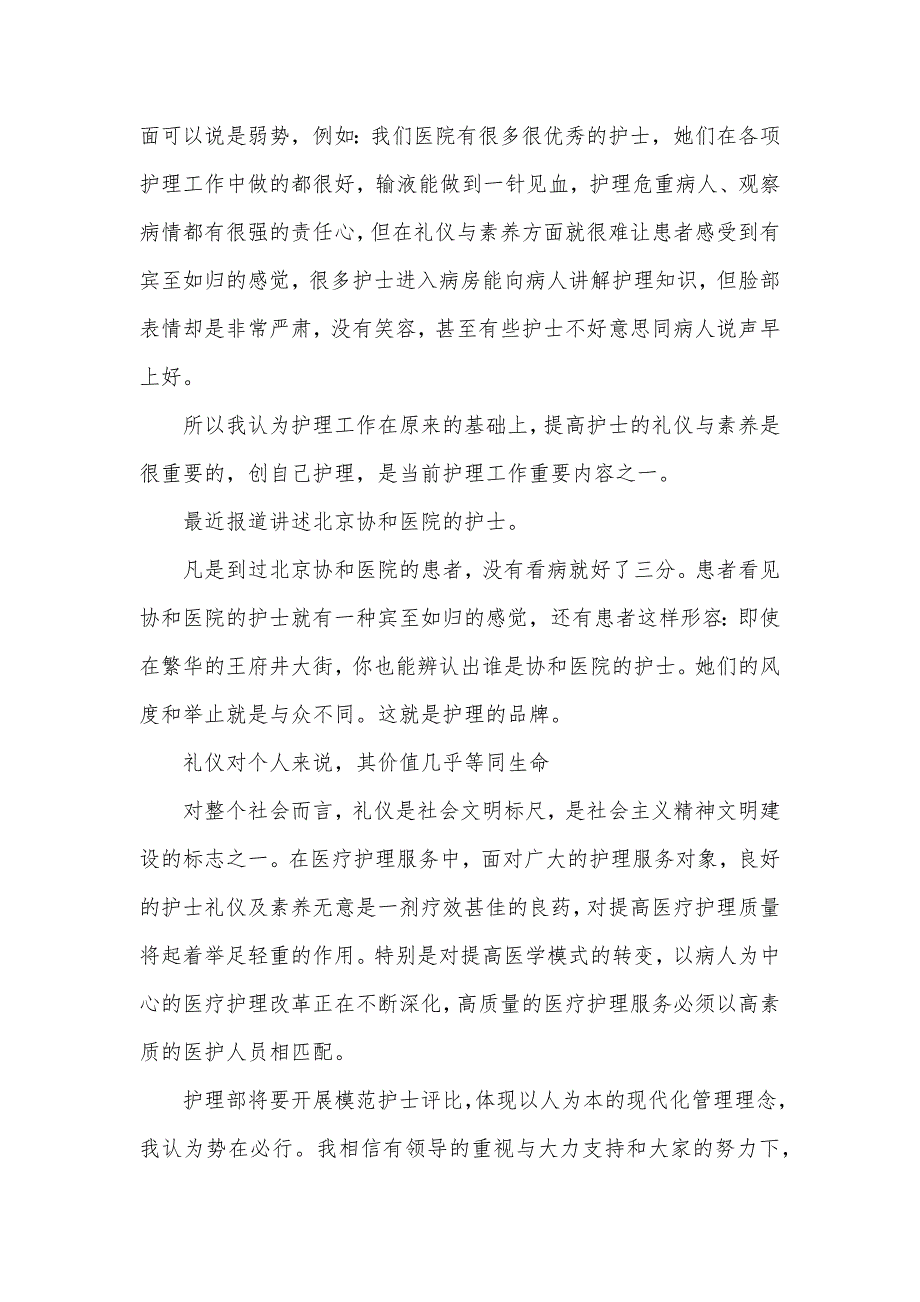 面可以说是弱势，例如：我们医院有很多很优秀的护士，她们在各项
护理工作中做的都很好，输液能做到一针见血，护理危重病人、观察
病情都有很强的责任心，但在礼仪与素养方面就很难让患者感受到有
宾至如归的感觉，很多护士进入病房能向病人讲解护理知识，但脸部
表情却是非常严肃，没有笑容，甚至有些护士不好意思同病人说声早
上好。
所以我认为护理工作在原来的基础上，提高护士的礼仪与素养是
很重要的，创自己护理，是当前护理工作重要内容之一。
最近报道讲述北京协和医院的护士。
凡是到过北京协和医院的患者，没有看病就好了三分。患者看见
协和医院的护士就有一种宾至如归的感觉，还有患者这样形容：即使
在繁华的王府井大街，你也能辨认出谁是协和医院的护士。她们的风
度和举止就是与众不同。这就是护理的品牌。
礼仪对个人来说，其价值几乎等同生命
对整个社会而言，礼仪是社会文明标尺，是社会主义精神文明建
设的标志之一。在医疗护理服务中，面对广大的护理服务对象，良好
的护士礼仪及素养无意是一剂疗效甚佳的良药，对提高医疗护理质量
将起着举足轻重的作用。特别是对提高医学模式的转变，以病人为中
心的医疗护理改革正在不断深化，高质量的医疗护理服务必须以高素
质的医护人员相匹配。
护理部将要开展模范护士评比，体现以人为本的现代化管理理念，
我认为势在必行。我相信有领导的重视与大力支持和大家的努力下，